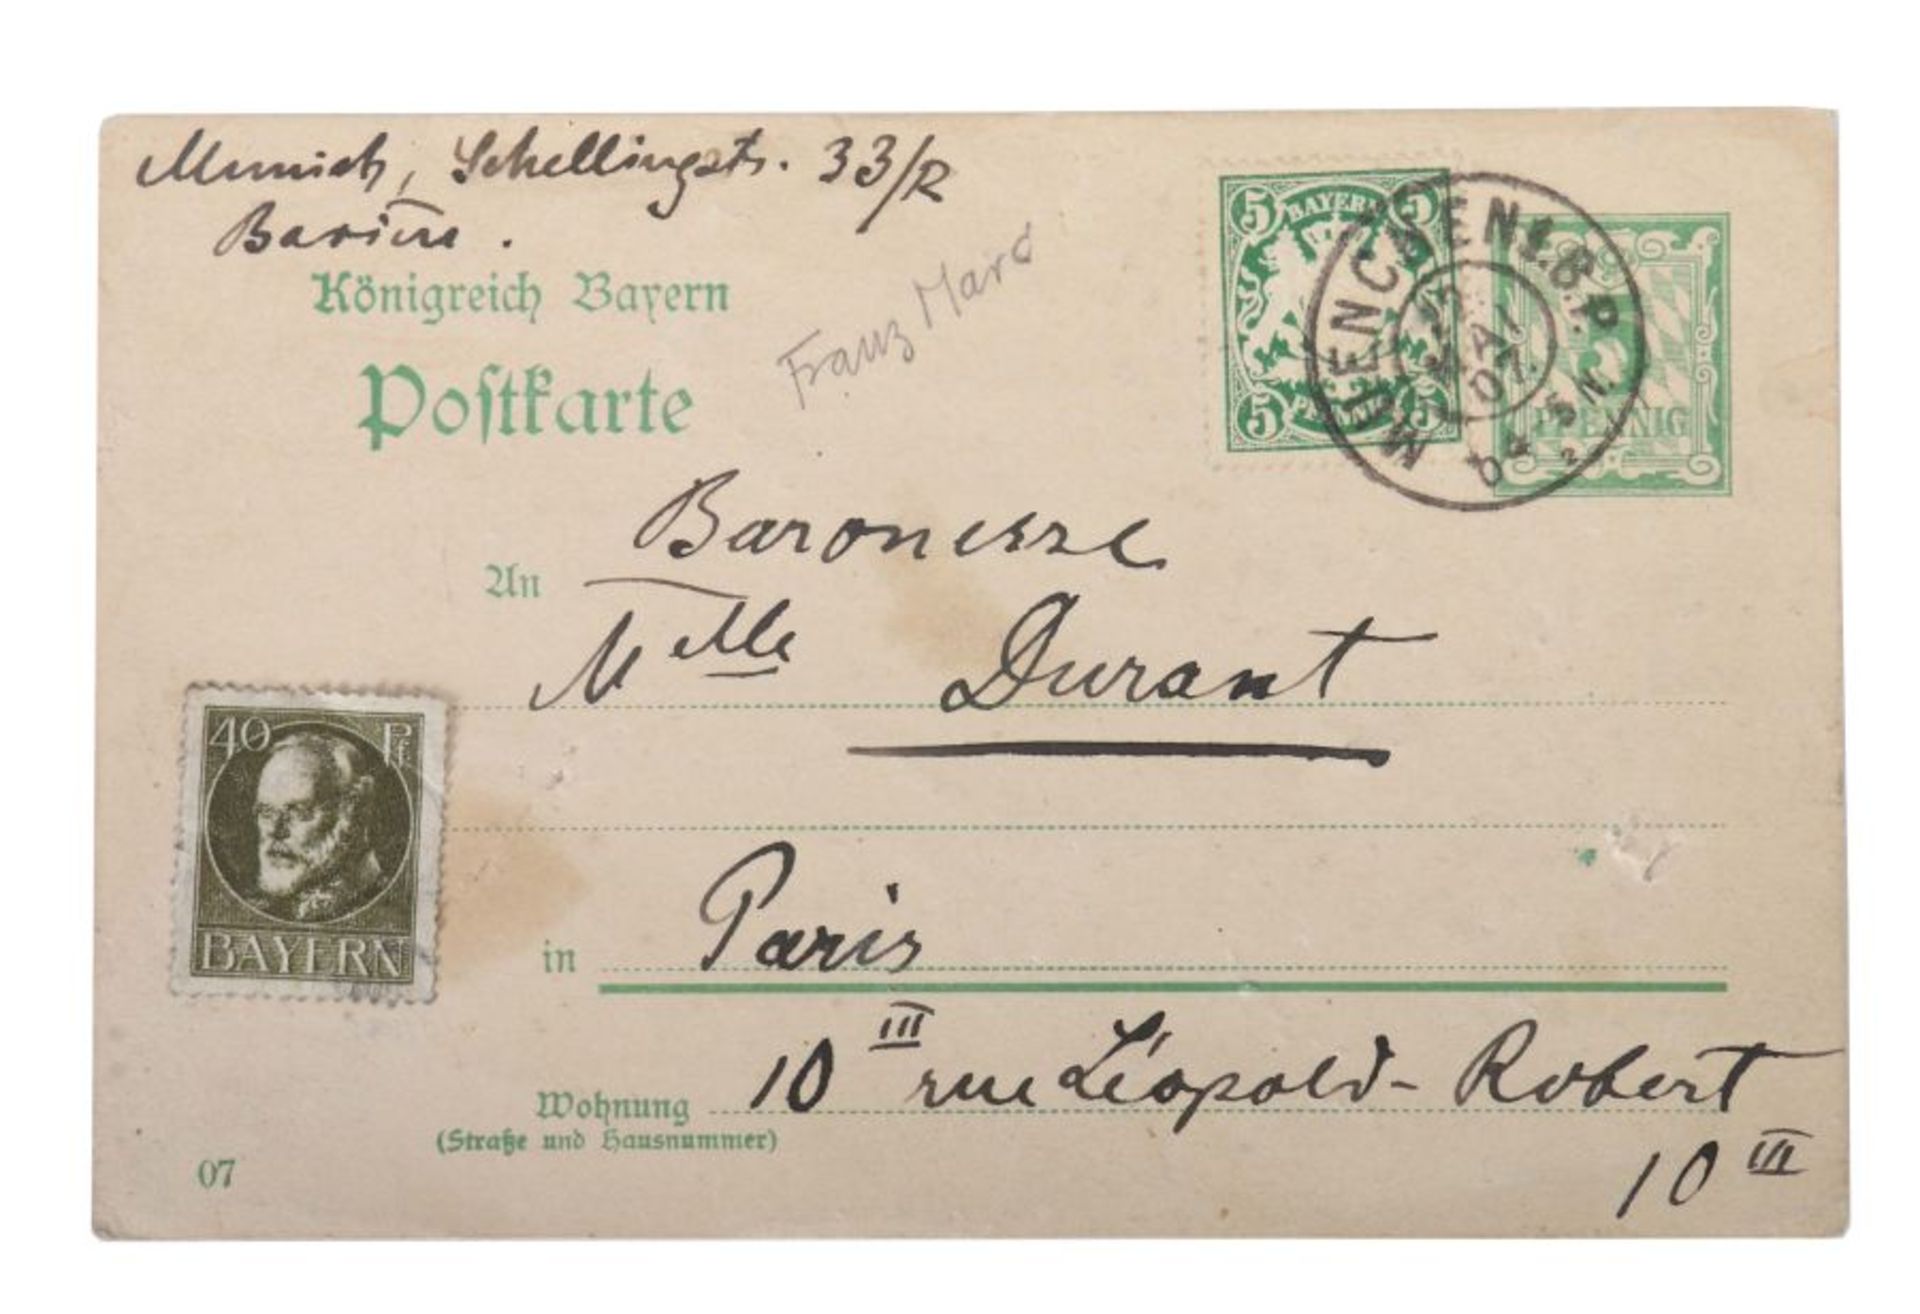 Munich, Schellingstr. 33/R
Bavière.
Königreich Bayern
Postkarte
Franz Marc
5 BAYERN 5
5 PFENNIG 5
MUENCHEN 1. B.P.
MAI
07.
4-5 N.
2
5
PFENNIG
Baronesse
An
Melle Durant
40 Pf.
BAYERN
in Paris
10 III rue Léopold-Robert
Wohnung
(Straße und Hausnummer)
10 III
07